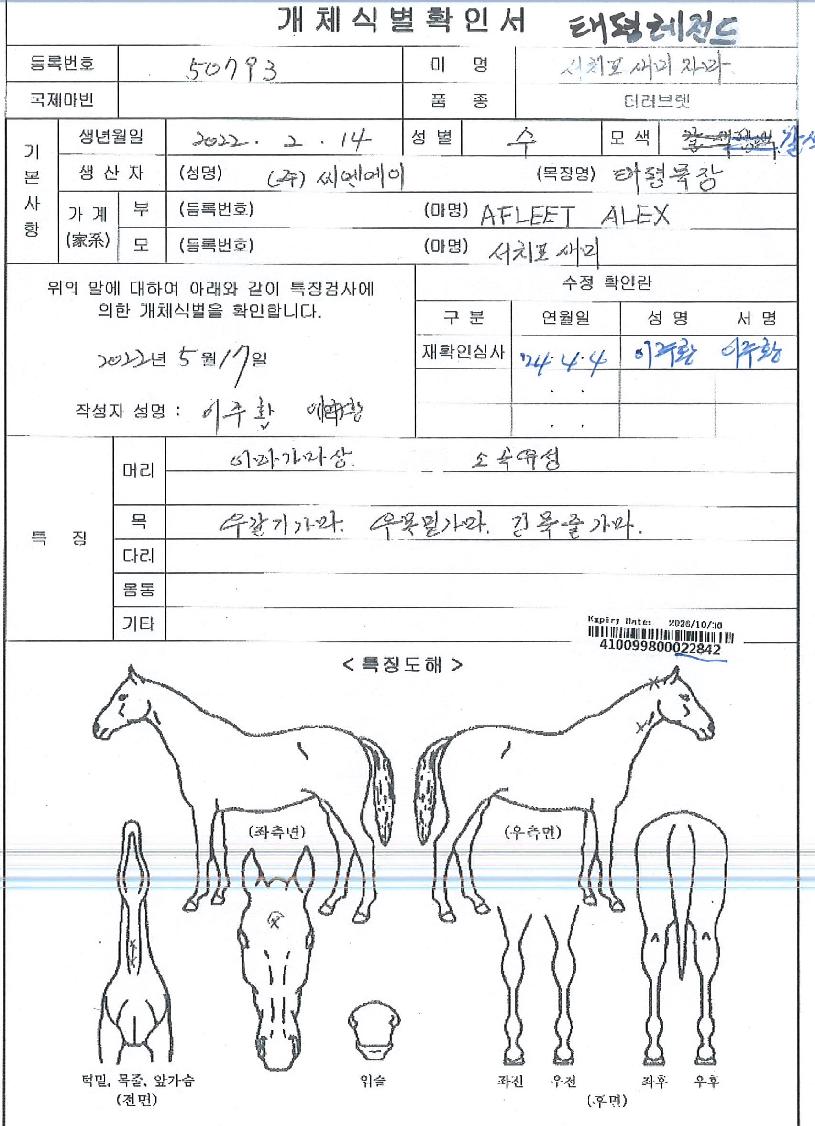 개체식별확인서 태평레전드
등록번호 50793 마 명 서치포새미자마
국제마빈 품 종 더러브렛
기본사항
생년월일 2022. 2. 14 성별 수 모색 갈색
생산자 (성명) (주)씨엔에이 (목장명) 태평목장
가계 (家系) 부 (등록번호) (마명) AFLEET ALEX
모 (등록번호) (마명) 서치포새미
위의 말에 대하여 아래와 같이 특징검사에
의한 개체식별을 확인합니다.
2022년 5월 17일
작성자 성명 : 이주환 이주환
수정 확인란
구분 연월일 성명 서명
재확인심사 '24.4.4 이주환 이주환
. .
. .
특 징
머리 이마가마상. 소속유성
목 우갈기가마. 우목밑가마. 긴목줄가마.
다리
몸통
기타
Expiry Date: 2026/10/30
410099800022842
< 특징도해 >
(좌측면) (우측면)
턱밑, 목줄, 앞가슴
(전면)
위슬
좌전 우전 좌후 우후
(후면)